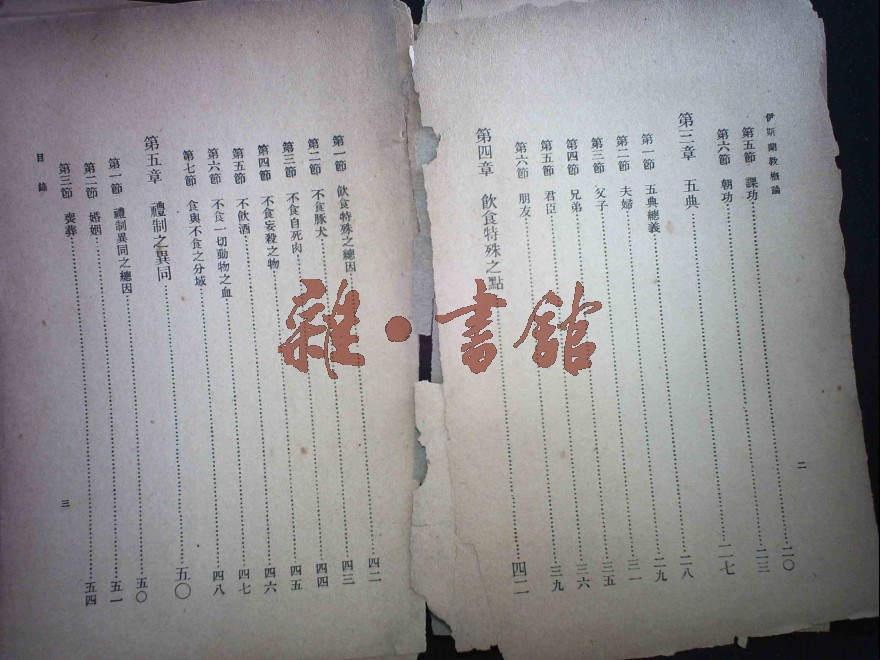 伊斯蘭教概論
二
第五節 課功………二〇
第六節 朝功………二三
第三章 五典………二七
第一節 五典總義………二八
第二節 夫婦………二九
第三節 父子………三一
第四節 兄弟………三五
第五節 君臣………三六
第六節 朋友………三九
第四章 飲食特殊之點………四二
第一節 飲食特殊之總因………四二
第二節 不食豚犬………四三
第三節 不食自死肉………四四
第四節 不食妄殺之物………四五
第五節 不飲酒………四六
第六節 不食一切動物之血………四七
第七節 食與不食之分域………四八
第五章 禮制之異同………五〇
第一節 禮制異同之總因………五〇
第二節 婚姻………五一
第三節 喪葬………五四
目錄
三
雜·書館